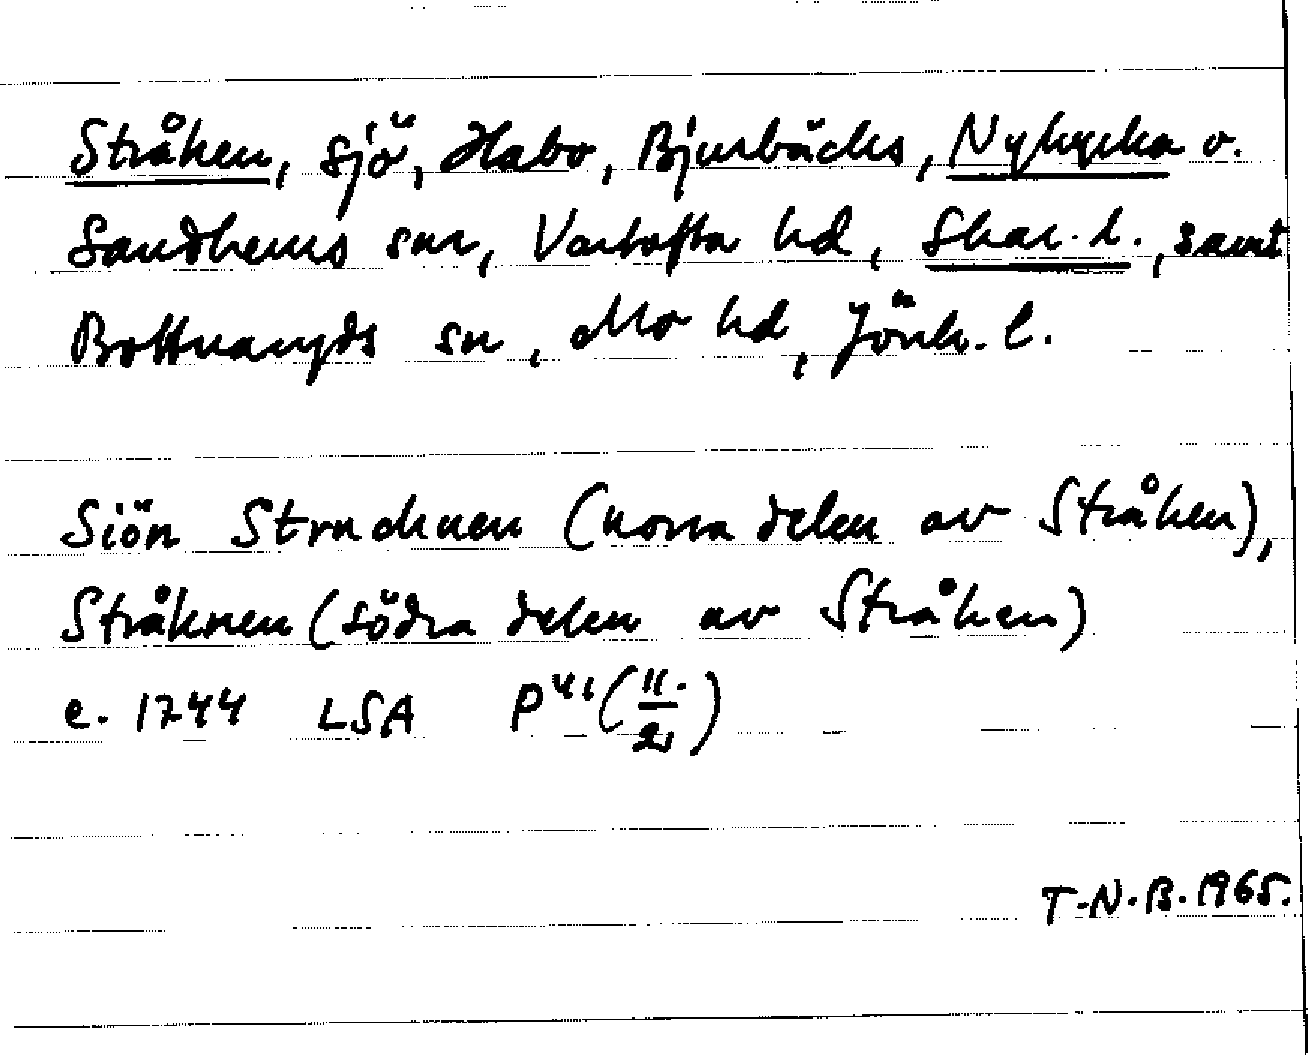 Stråken, sjö, Habo, Bjurbäcks, Nykyrka o.
Sandhems snr, Vartofta hd, Skar. l., samt
Bottnaryds sn, Mo hd, Jönk. l.
Siön Struchnen (norra delen av Stråken),
Stråknen (södra delen av Stråken)
c. 1744 LSA P 41 (11./2)
T.N.B. 1965.